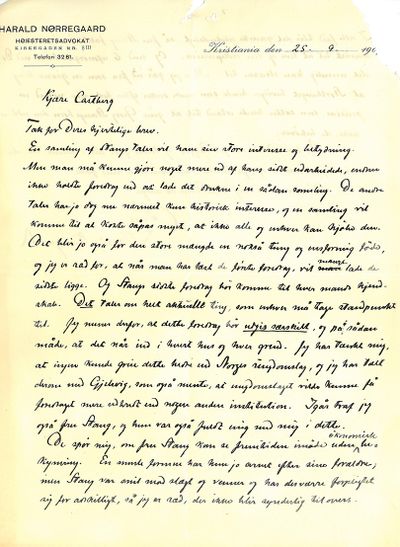 HARALD NØRREGAARD
HØIESTERETSADVOKAT
KIRKEGADEN NR.
Telefon 3261.
Kristiania den 25 - 9 - 190
Kjære Castberg
Tak for Deres hjertelige brev.
En samling af Stangs taler vil have sin store interesse og betydning.
Men man må kunne gjøre noget mere ud af hans sidst udarbeidede, endnu
ikke holdte foredrag end at lade det drukne i en sådan samling. De andre
taler har jo dog nu nærmest kun historisk interesse, og en samling vil
komme til at koste såpas meget, at ikke alle og enhver kan kjøbe den.
Det blir jo også for den store mængde en nokså tung og ensformig føde,
og jeg er ræd for, at når man har læst de første foredrag, vil mange lade de
sidste ligge. Og Stangs sidste foredrag bør komme til hver mands kund-
skab. Det taler om helt aktuelle ting, som enhver må tage standpunkt
til. Jeg mener derfor, at dette foredrag bør udgis særskilt, og på sådan
måde, at det når ind i hvert hus og hver grend. Jeg har tænkt mig,
at ingen kunde gjøre dette bedre end Norges ungdomslag, og jeg har talt
derom med Gjelsvig, som også mente, at ungdomslaget vilde kunne få
foredraget mere udbredt end nogen anden institution. Igår traf jeg
også fru Stang, og hun var også fuldt enig med mig i dette.
De spør mig, om fru Stang kan se fremtiden imøde uden økonomisk be-
kymring. En smule formue har hun jo arvet efter sine forældre;
men Stang var snil mod slægt og venner og har desværre forpligtet
sig for adskilligt, så jeg er ræd, der ikke blir synderlig til overs.